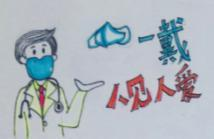 一戴
人见人爱